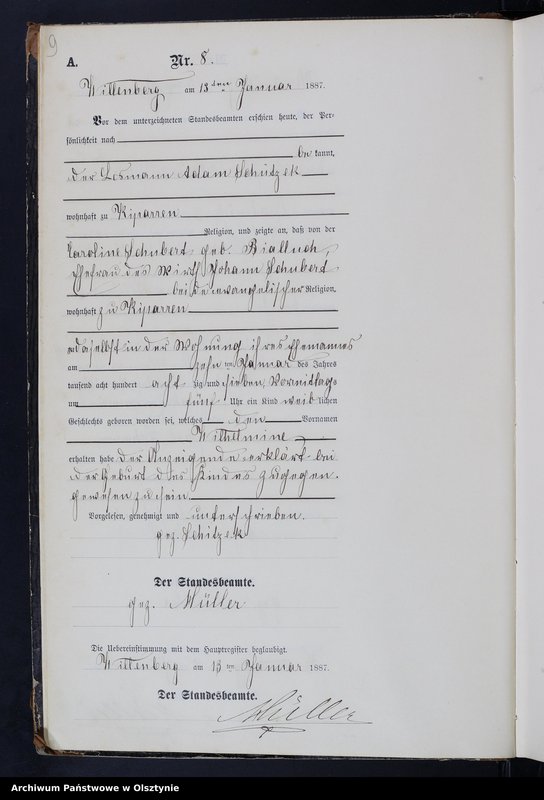 9
A. Nr. 8.
Wittenberg am 13ten Januar 1887.
Vor dem unterzeichneten Standesbeamten erschien heute, der Per-
sönlichkeit nach
bekannt,
der Losmann Adam Schützek
wohnhaft zu Kiparren
Religion, und zeigte an, daß von der
Caroline Schubert geb. Bialluch,
Ehefrau des Wirth Johann Schubert
beide evangelischer Religion,
wohnhaft zu Kiparren
daselbst in der Wohnung ihres Ehemannes
am zehnten Januar des Jahres
tausend acht hundert achtzig und sieben, Vormittags
um fünf Uhr ein Kind weiblichen
Geschlechts geboren worden sei, welches den Vornamen
Wilhelmine
erhalten habe der Anzeigende erklärt bei
der Geburt des Kindes zugegen
gewesen zu sein
Vorgelesen, genehmigt und unterschrieben.
gez. Schitzek
Der Standesbeamte.
gez. Müller
Die Uebereinstimmung mit dem Hauptregister beglaubigt.
Wittenberg am 13ten Januar 1887.
Der Standesbeamte.
Müller
Archiwum Państwowe w Olsztynie